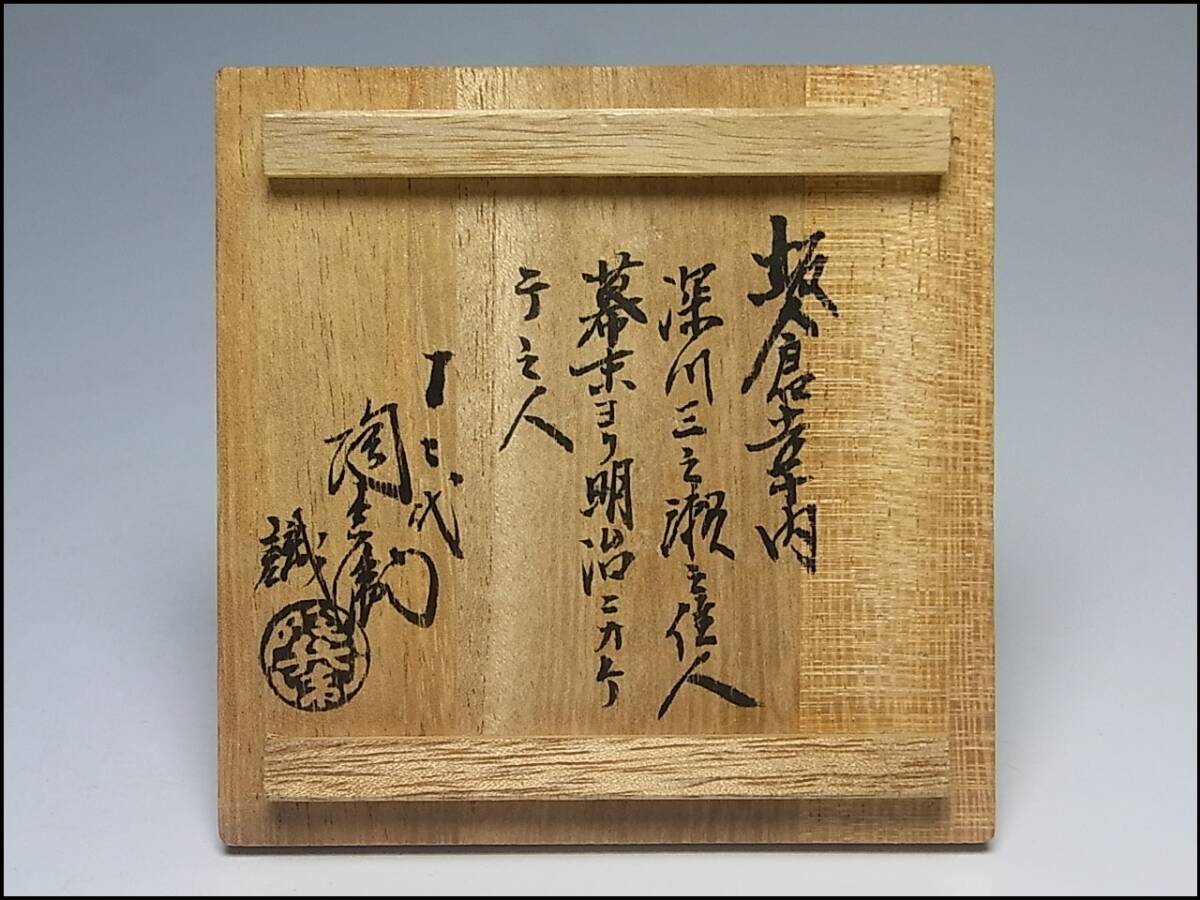 坂倉幸内
深川三之瀬之住人
幕末ヨリ明治ニカケ
テ之人
十七代
陶兵衛
識